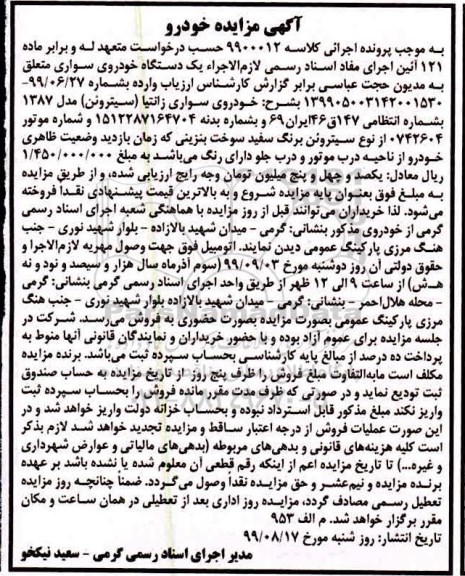 آگهی مزایده خودرو
به موجب پرونده اجرائی کلاسه ۹۹۰۰۰۱۲ حسب درخواست متعهد له و برابر ماده
۱۲۱ آئین اجرای مفاد اسناد رسمی لازم‌الاجراء یک دستگاه خودروی سواری متعلق
به مدیون حجت عباسی برابر گزارش کارشناس ارزیاب وارده بشماره ۹۹/۰۶/۲۷-
۱۳۹۹۰۵۰۰۳۱۴۲۰۰۱۵۳۰ بشرح: خودروی سواری زانتیا (سیتروئن) مدل ۱۳۸۷
بشماره انتظامی ۱۴۷ق۴۶ایران۶۹ و بشماره بدنه ۱۵۱۲۲۸۷۱۶۴۷۰۴ و شماره موتور
۰۷۴۲۶۰۴ از نوع سیتروئن برنگ سفید سوخت بنزینی که زمان بازدید وضعیت ظاهری
خودرو از ناحیه درب موتور و درب جلو دارای رنگ می‌باشد به مبلغ ۱/۴۵۰/۰۰۰/۰۰۰
ریال معادل: یکصد و چهل و پنج میلیون تومان وجه رایج ارزیابی شده، و از طریق مزایده
به مبلغ فوق بعنوان پایه مزایده شروع و به بالاترین قیمت پیشنهادی نقدا فروخته
می‌شود. لذا خریداران می‌توانند قبل از روز مزایده با هماهنگی شعبه اجرای اسناد رسمی
گرمی از خودروی مذکور بنشانی: گرمی - میدان شهید بالازاده - بلوار شهید نوری - جنب
هنگ مرزی پارکینگ عمومی دیدن نمایند. اتومبیل فوق جهت وصول مهریه لازم‌الاجرا و
حقوق دولتی آن روز دوشنبه مورخ ۹۹/۰۹/۰۳ (سوم آذرماه سال هزار و سیصد و نود و نه
ه‍.ش) از ساعت ۹ الی ۱۲ ظهر از طریق واحد اجرای اسناد رسمی گرمی بنشانی: گرمی
- محله هلال‌احمر - بنشانی: گرمی - میدان شهید بالازاده بلوار شهید نوری - جنب هنگ
مرزی پارکینگ عمومی بصورت مزایده بصورت حضوری به فروش می‌رسد. شرکت در
جلسه مزایده برای عموم آزاد بوده و با حضور خریداران و نمایندگان قانونی آنها منوط به
پرداخت ده درصد از مبالغ پایه کارشناسی بحساب سپرده ثبت می‌باشد. برنده مزایده
مکلف است مابه‌التفاوت مبلغ فروش را ظرف پنج روز از تاریخ مزایده به حساب صندوق
ثبت تودیع نماید و در صورتی که ظرف مدت مقرر مانده فروش را بحساب سپرده ثبت
واریز نکند مبلغ مذکور قابل استرداد نبوده و بحساب خزانه دولت واریز خواهد شد و در
این صورت عملیات فروش از درجه اعتبار ساقط و مزایده تجدید خواهد شد. لازم بذکر
است کلیه هزینه‌های قانونی و بدهی‌های مربوطه (بدهی‌های مالیاتی و عوارض شهرداری
و غیره...) تا تاریخ مزایده اعم از اینکه رقم قطعی آن معلوم شده یا نشده باشد بر عهده
برنده مزایده و نیم‌عشر و حق مزایده نقدا وصول می‌گردد. ضمنا چنانچه روز مزایده
تعطیل رسمی مصادف گردد، مزایده روز اداری بعد از تعطیلی در همان ساعت و مکان
مقرر برگزار خواهد شد. م الف ۹۵۳
تاریخ انتشار: روز شنبه مورخ ۹۹/۰۸/۱۷
مدیر اجرای اسناد رسمی گرمی - سعید نیکخو